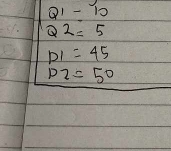 Q1 = 10
Q2 = 5
P1 = 45
P2 = 50